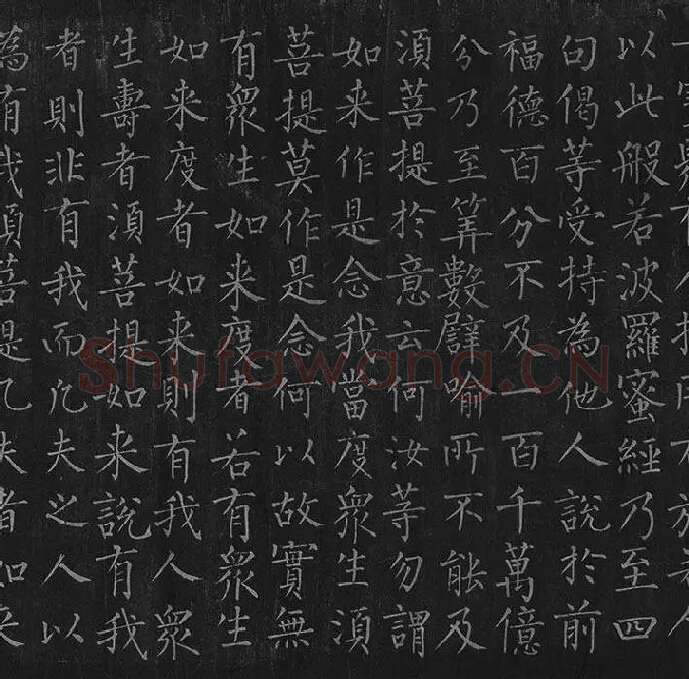 以此般若波羅蜜經乃至四
句偈等受持為他人說於前
福德百分不及一百千萬億
分乃至筭數譬喻所不能及
須菩提於意云何汝等勿謂
如来作是念我當度衆生須
菩提莫作是念何以故實無
有衆生如来度者若有衆生
如来度者如来則有我人衆
生壽者須菩提如来說有我
者則非有我而凢夫之人以
為有我須菩提凢夫者如来
Shufawang.CN